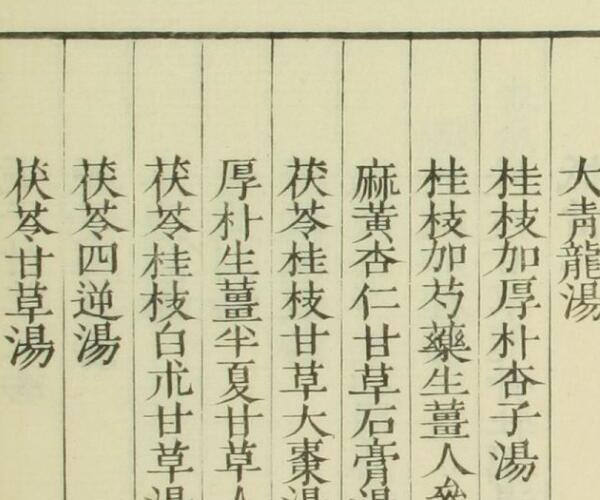 大青龍湯
桂枝加厚朴杏子湯
桂枝加芍藥生薑人
麻黃杏仁甘草石膏湯
茯苓桂枝甘草大棗湯
厚朴生薑半夏甘草人
茯苓桂枝白朮甘草湯
茯苓四逆湯
茯苓甘草湯